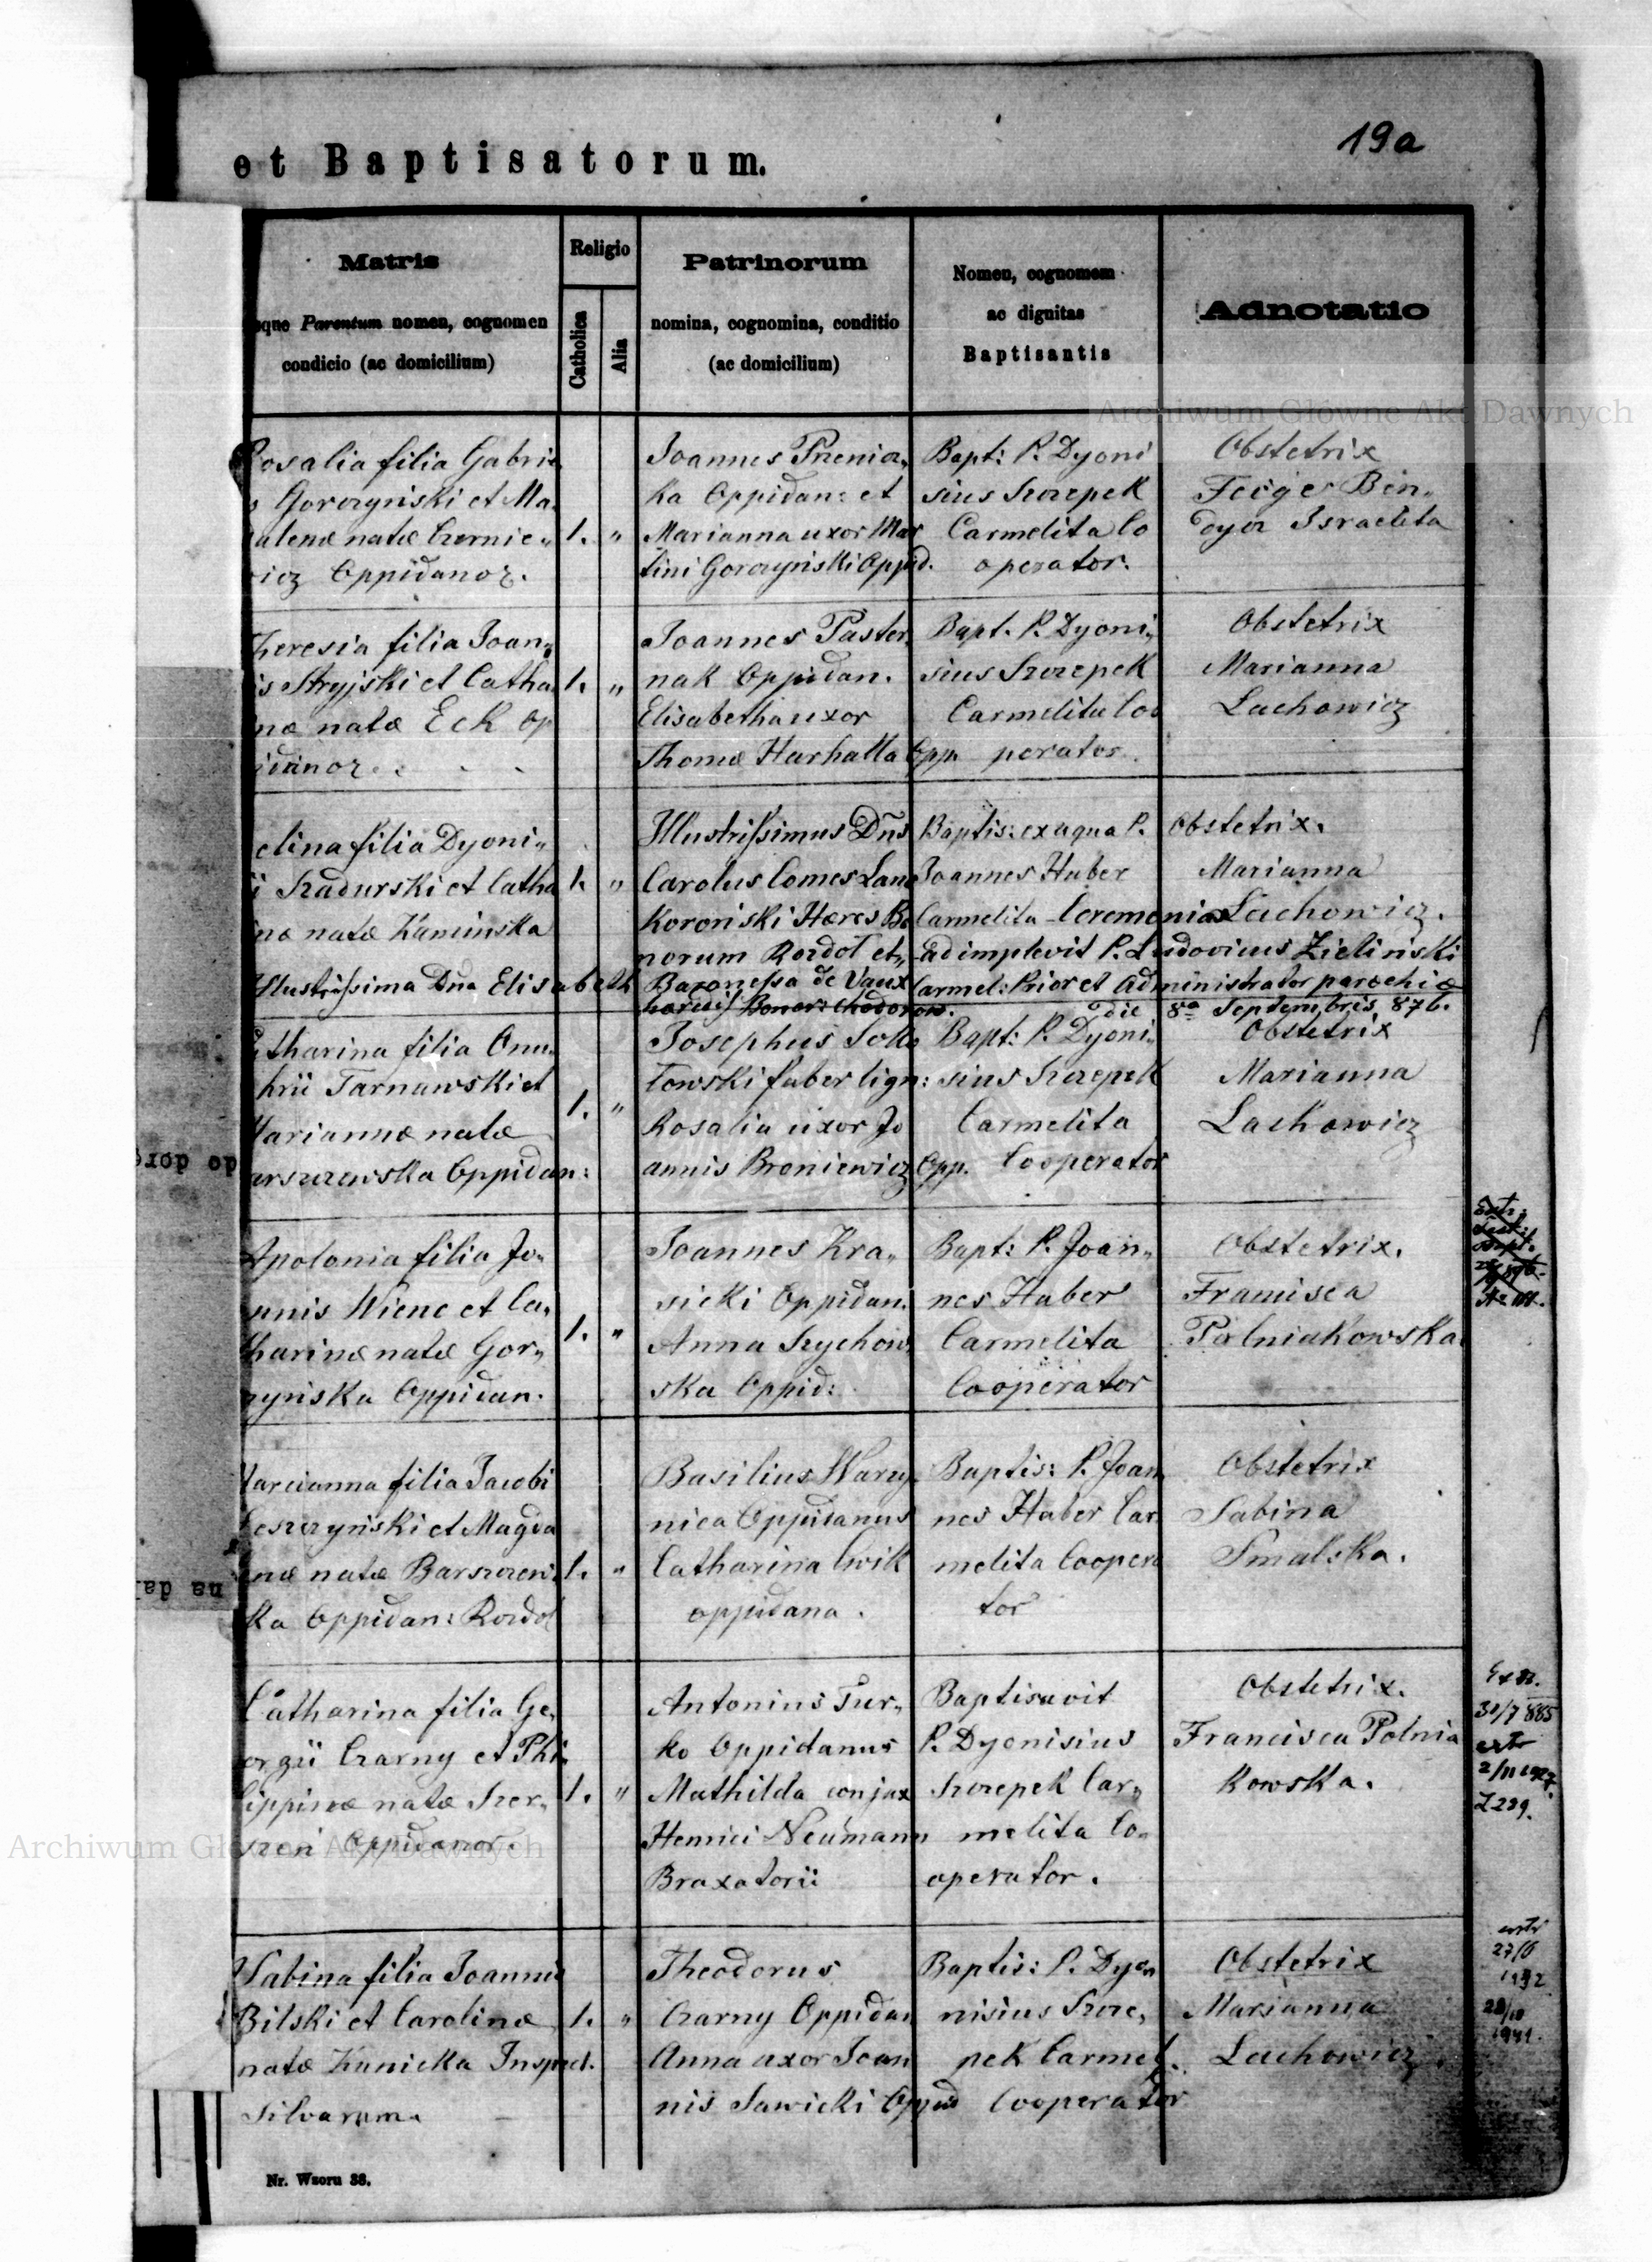 19a
et Baptisatorum.
Matris
que Parentum nomen, cognomen
condicio (ac domicilium)
Religio
Catholica
Alia
Patrinorum
nomina, cognomina, conditio
(ac domicilium)
Nomen, cognomen
ac dignitas
Baptisantis
Adnotatio
Archiwum Główne Akt Dawnych
Rosalia filia Gabrie
Gorczyński et Ma
alenæ natæ Czernie„
icz Oppidanor.
1. „
Joannes Pzenicz„
ka Oppidan: et
Marianna uxor Mar
tini Gorczyński Oppid.
Bapt: P. Dyoni
sius Szczepek
Carmelita Co
operator.
Obstetrix
Feige Ben„
Israelita
Theresia filia Joan„
is Stryjski et Catha
næ natæ Eck Op
idanor.
1. „
Joannes Paster
nak Oppidan.
Elisabetha uxor
Thomæ Harhatta Opp.
Bapt. P. Dyoni„
sius Szczepek
Carmelita Coo
perator.
Obstetrix
Marianna
Lachowicz
elina filia Dyoni„
i Szadurski et Catha
næ natæ Kaminska
1. „
Illustrissimus Dns
Carolus Comes Lanc
koroński Hæres Bo
norum Rozdoł et„
Illustrissima Dna Elisabeth Baronessa de Vaux
Baptis: ex aqua P.
Joannes Huber
Carmelita - Ceremonias
adimplevit P. Ludovicus Zieliński
Carmel: Prior et Administrator parochiæ
die 8ª Septembris 876.
Obstetrix.
Marianna
Lachowicz.
Catharina filia Onu„
phrii Tarnawski et
Mariannæ natæ
arszczewska Oppidan:
1. „
Josephus Soko
łowski faber lign:
Rosalia uxor Jo
annis Broniewicz Opp.
Bapt: P. Dyoni„
sius Szczepek
Carmelita
Cooperator
Obstetrix
Marianna
Lachowicz
Apolonia filia Jo„
annis Wienc et Ca„
tharinæ natæ Gor„
zyńska Oppidan.
1. „
Joannes Kra„
sicki Oppidan.
Anna Szychow
ska Oppid:
Bapt: P. Joan„
nes Huber
Carmelita
Cooperator
Obstetrix.
Francisca
Polniakowska
Marcianna filia Jacobi
eszczyński et Magda
enæ natæ Barszczew
ka Oppidan: Rozdoł
1. „
Basilius Warzy
nica Oppidanus
Catharina Cwik
oppidana.
Baptis: P. Joan
nes Huber Car
melita Coopera
tor
Obstetrix
Sabina
Smalska.
Catharina filia Ge„
orgii Czarny et Phi
lippinæ natæ Szer„
szeń Oppidanor.
1. „
Antonius Tur„
ko Oppidanus
Mathilda conjux
Henrici Neumann
Braxatorii
Baptisavit
P. Dyonisius
Szczepek Car„
melita Co„
operator.
Obstetrix.
Francisca Polnia
kowska.
30/7 885
Z 289.
Archiwum Główne Akt Dawnych
Sabina filia Joannis
Bilski et Carolinæ
natæ Kunicka Inspect.
Silvarum.
1. „
Theodorus
Czarny Oppidan
Anna uxor Joan
nis Sawicki Oppid
Baptis: P. Dyo
nisius Szcze„
pek Carmel.
Cooperator
Obstetrix
Marianna
Lachowicz.
27/6
1932
28/10
1941.
Nr. Wzoru 38.